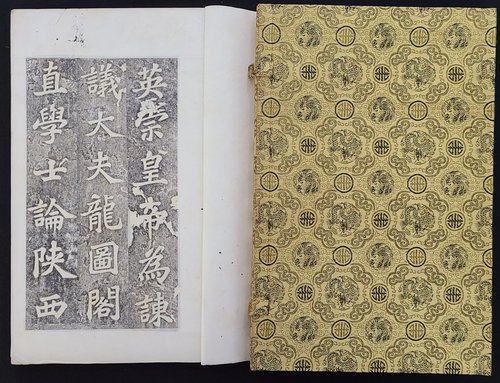 英宗皇帝為諫
議大夫龍圖閣
直學士論陝西